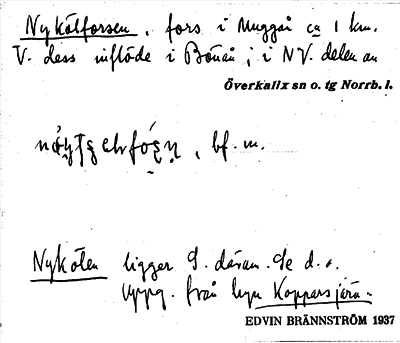 Nykölforsen, fors i Muggån ca 1 km.
V. dess inflöde i Bönån; i NV. delen av
Överkalix sn o. tg Norrb. l.
bf. m.
Nykölen ligger S. däram. Se d. o.
Uppg. från byn Kopparsjärn.
EDVIN BRÄNNSTRÖM 1937